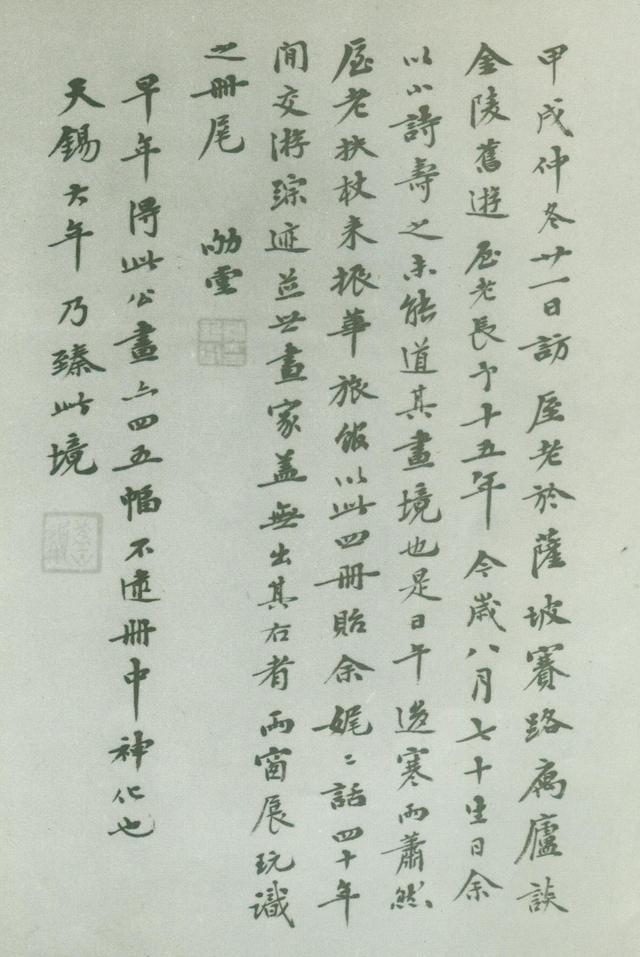 甲戌仲冬廿一日訪 匡老於薩坡賽路寓廬談
金陵舊遊 匡老長予十五年 今歲八月七十生日余
以小詩壽之未能道其畫境也是日午後寒雨蕭然
匡老扶杖来振華旅館以此四冊貽余娓娓話四十年
間交游踪迹並世畫家蓋無出其右者 雨窗展玩識
之冊尾 劬堂
早年得此公畫六四五幅不逮冊中神化也
天錫大年乃臻此境